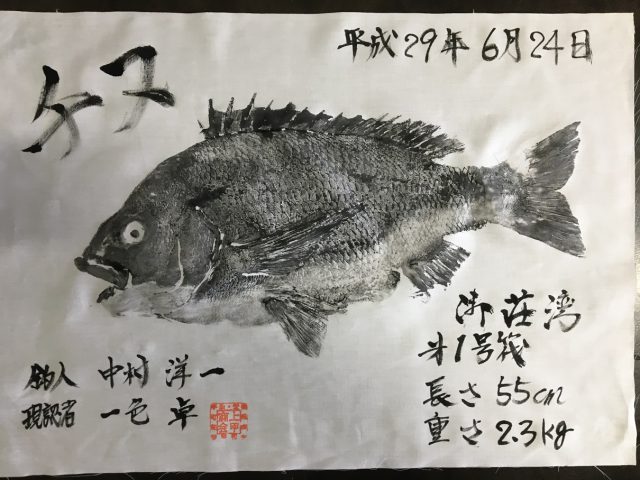 平成29年6月24日
チヌ
御荘湾
1号筏
長さ 55cm
重さ 2.3kg
釣人 中村 洋一
現認者 一色 卓